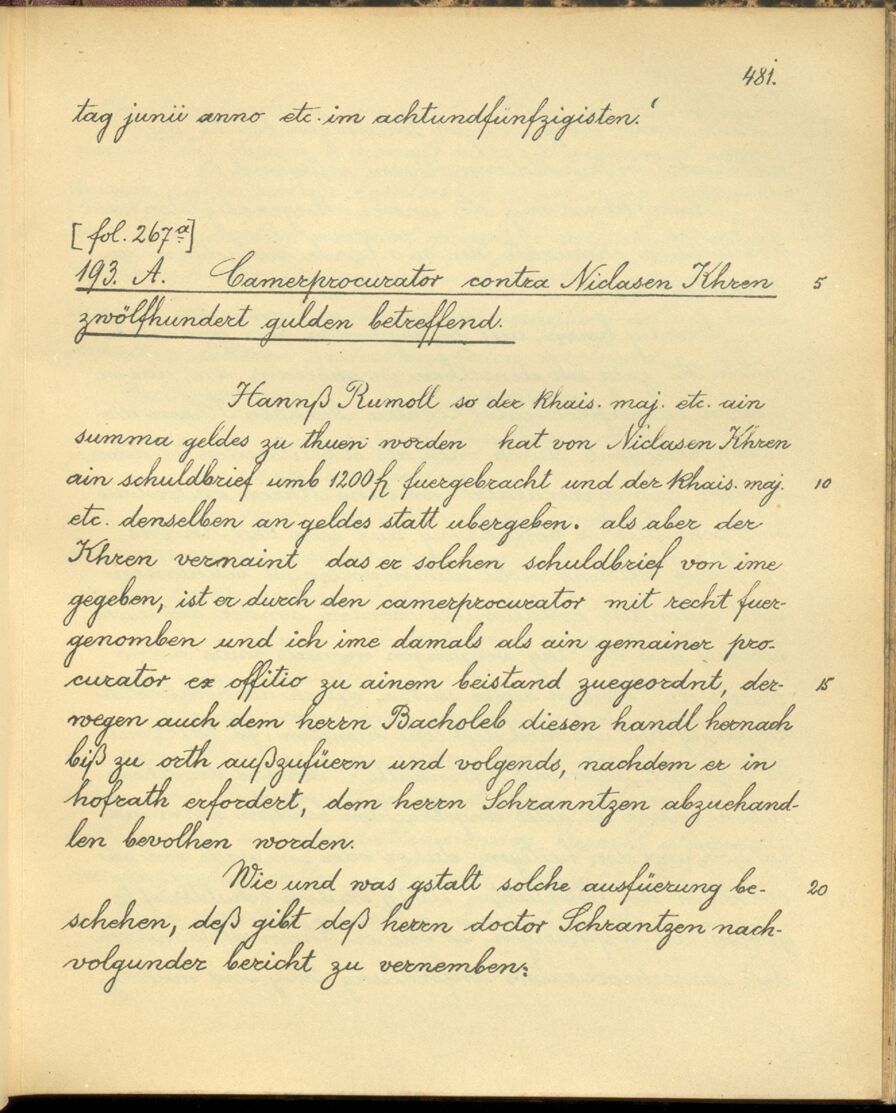 481.
tag junii anno etc. im achtundfünfzigisten.'
[fol. 267a]
193. A. Camerprocurator contra Niclasen Khren 5
zwölfhundert gulden betreffend.
Hannß Rumoll so der khais. maj. etc. ain
summa geldes zu thuen worden hat von Niclasen Khren
ain schuldbrief umb 1200 fl fuergebracht und der khais. maj. 10
etc. denselben an geldes statt ubergeben. als aber der
Khren vernaint das er solchen schuldbrief von ime
gegeben, ist er durch den camerprocurator mit recht fuer-
genomben und ich ime damals als ain gemainer pro-
curator ex offitio zu ainem beistand zuegeordnt, der- 15
wegen auch dem herrn Bacholeb diesen handl hernach
biß zu orth außzufüern und volgends, nachdem er in
hofrath erfordert, dem herrn Schranntzen abzuehand-
len bevolhen worden.
Wie und was gstalt solche ausfüerung be- 20
schehen, deß gibt deß herrn doctor Schrantzen nach-
volgunder bericht zu vernemben: